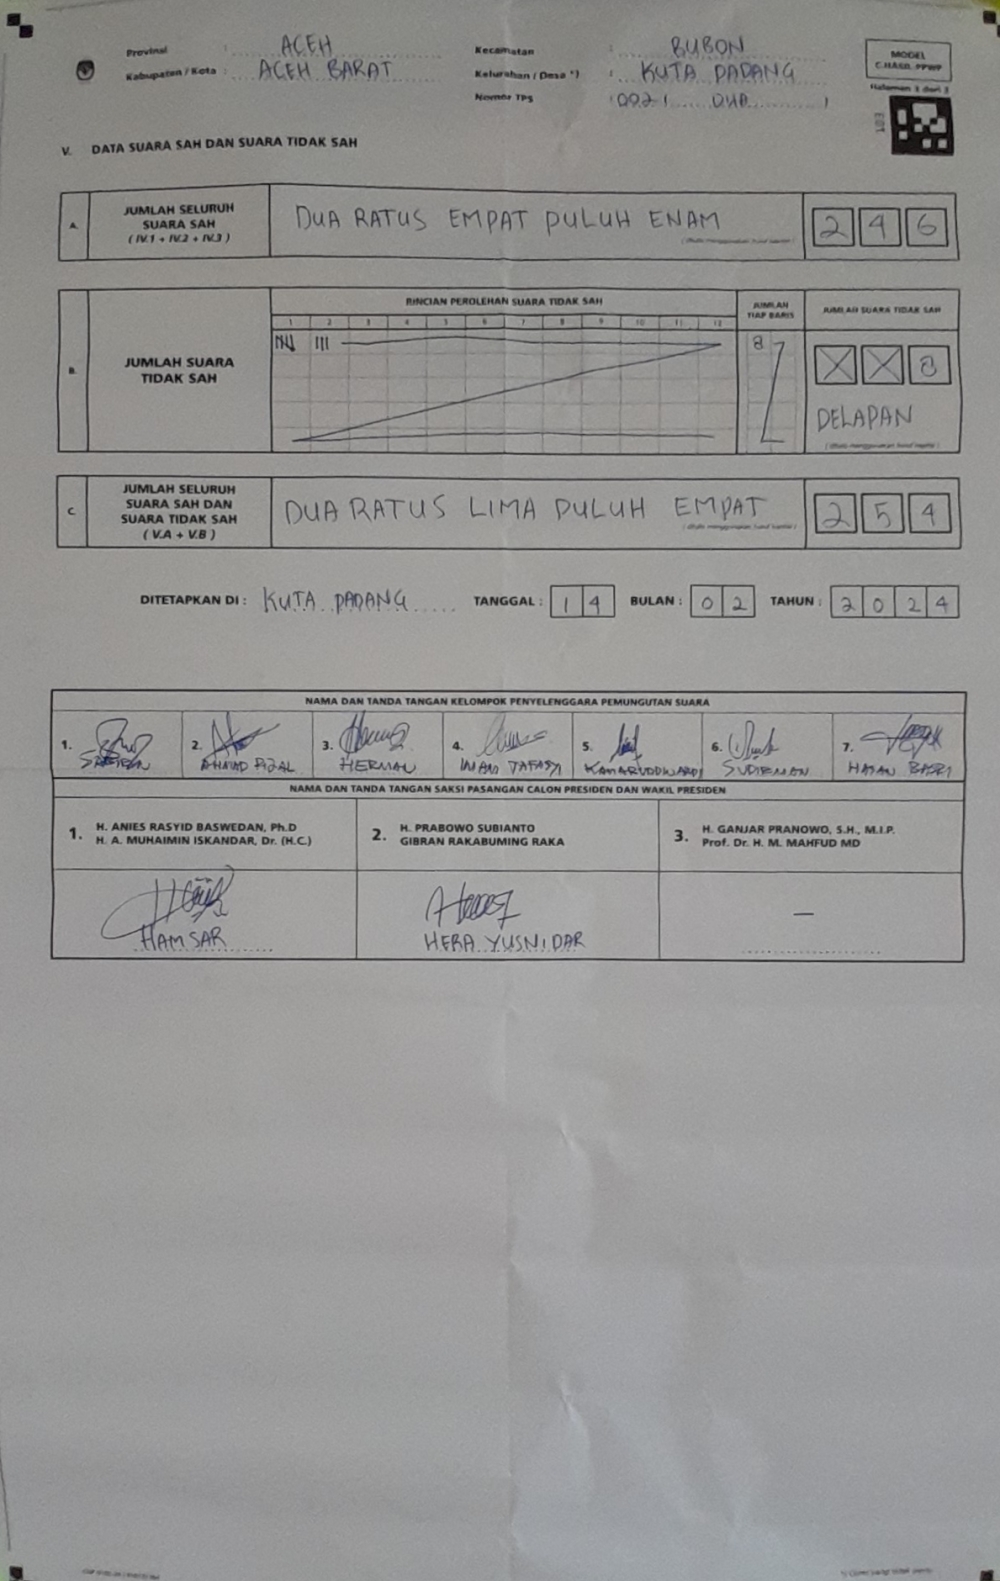 Provinsi : ACEH
Kabupaten / Kota : ACEH BARAT
Kecamatan : BUBON
Kelurahan / Desa *) : KUTA PADANG
Nomor TPS : 002 DUA
MODEL
C.HASIL-PPWP
Halaman 3 dari 3
E01
V. DATA SUARA SAH DAN SUARA TIDAK SAH
A. JUMLAH SELURUH
SUARA SAH
( IV.1 + IV.2 + IV.3 )
DUA RATUS EMPAT PULUH ENAM
2 4 6
B. JUMLAH SUARA
TIDAK SAH
RINCIAN PEROLEHAN SUARA TIDAK SAH
1 2 3 4 5 6 7 8 9 10 11 12
JUMLAH
TIAP BARIS
8
JUMLAH SUARA TIDAK SAH
X X 8
DELAPAN
C. JUMLAH SELURUH
SUARA SAH DAN
SUARA TIDAK SAH
( V.A + V.B )
DUA RATUS LIMA PULUH EMPAT
2 5 4
DITETAPKAN DI : KUTA PADANG TANGGAL : 14 BULAN : 02 TAHUN : 2024
NAMA DAN TANDA TANGAN KELOMPOK PENYELENGGARA PEMUNGUTAN SUARA
1.
2. AHMAD
3. HERMAN
4. IMAM
5.
6. SUDIRMAN
7. HASAN BASRI
NAMA DAN TANDA TANGAN SAKSI PASANGAN CALON PRESIDEN DAN WAKIL PRESIDEN
1. H. ANIES RASYID BASWEDAN, Ph.D
H. A. MUHAIMIN ISKANDAR, Dr. (H.C.)
2. H. PRABOWO SUBIANTO
GIBRAN RAKABUMING RAKA
3. H. GANJAR PRANOWO, S.H., M.I.P.
Prof. Dr. H. M. MAHFUD MD
HAMSAR
HERA YUSNIDAR
—